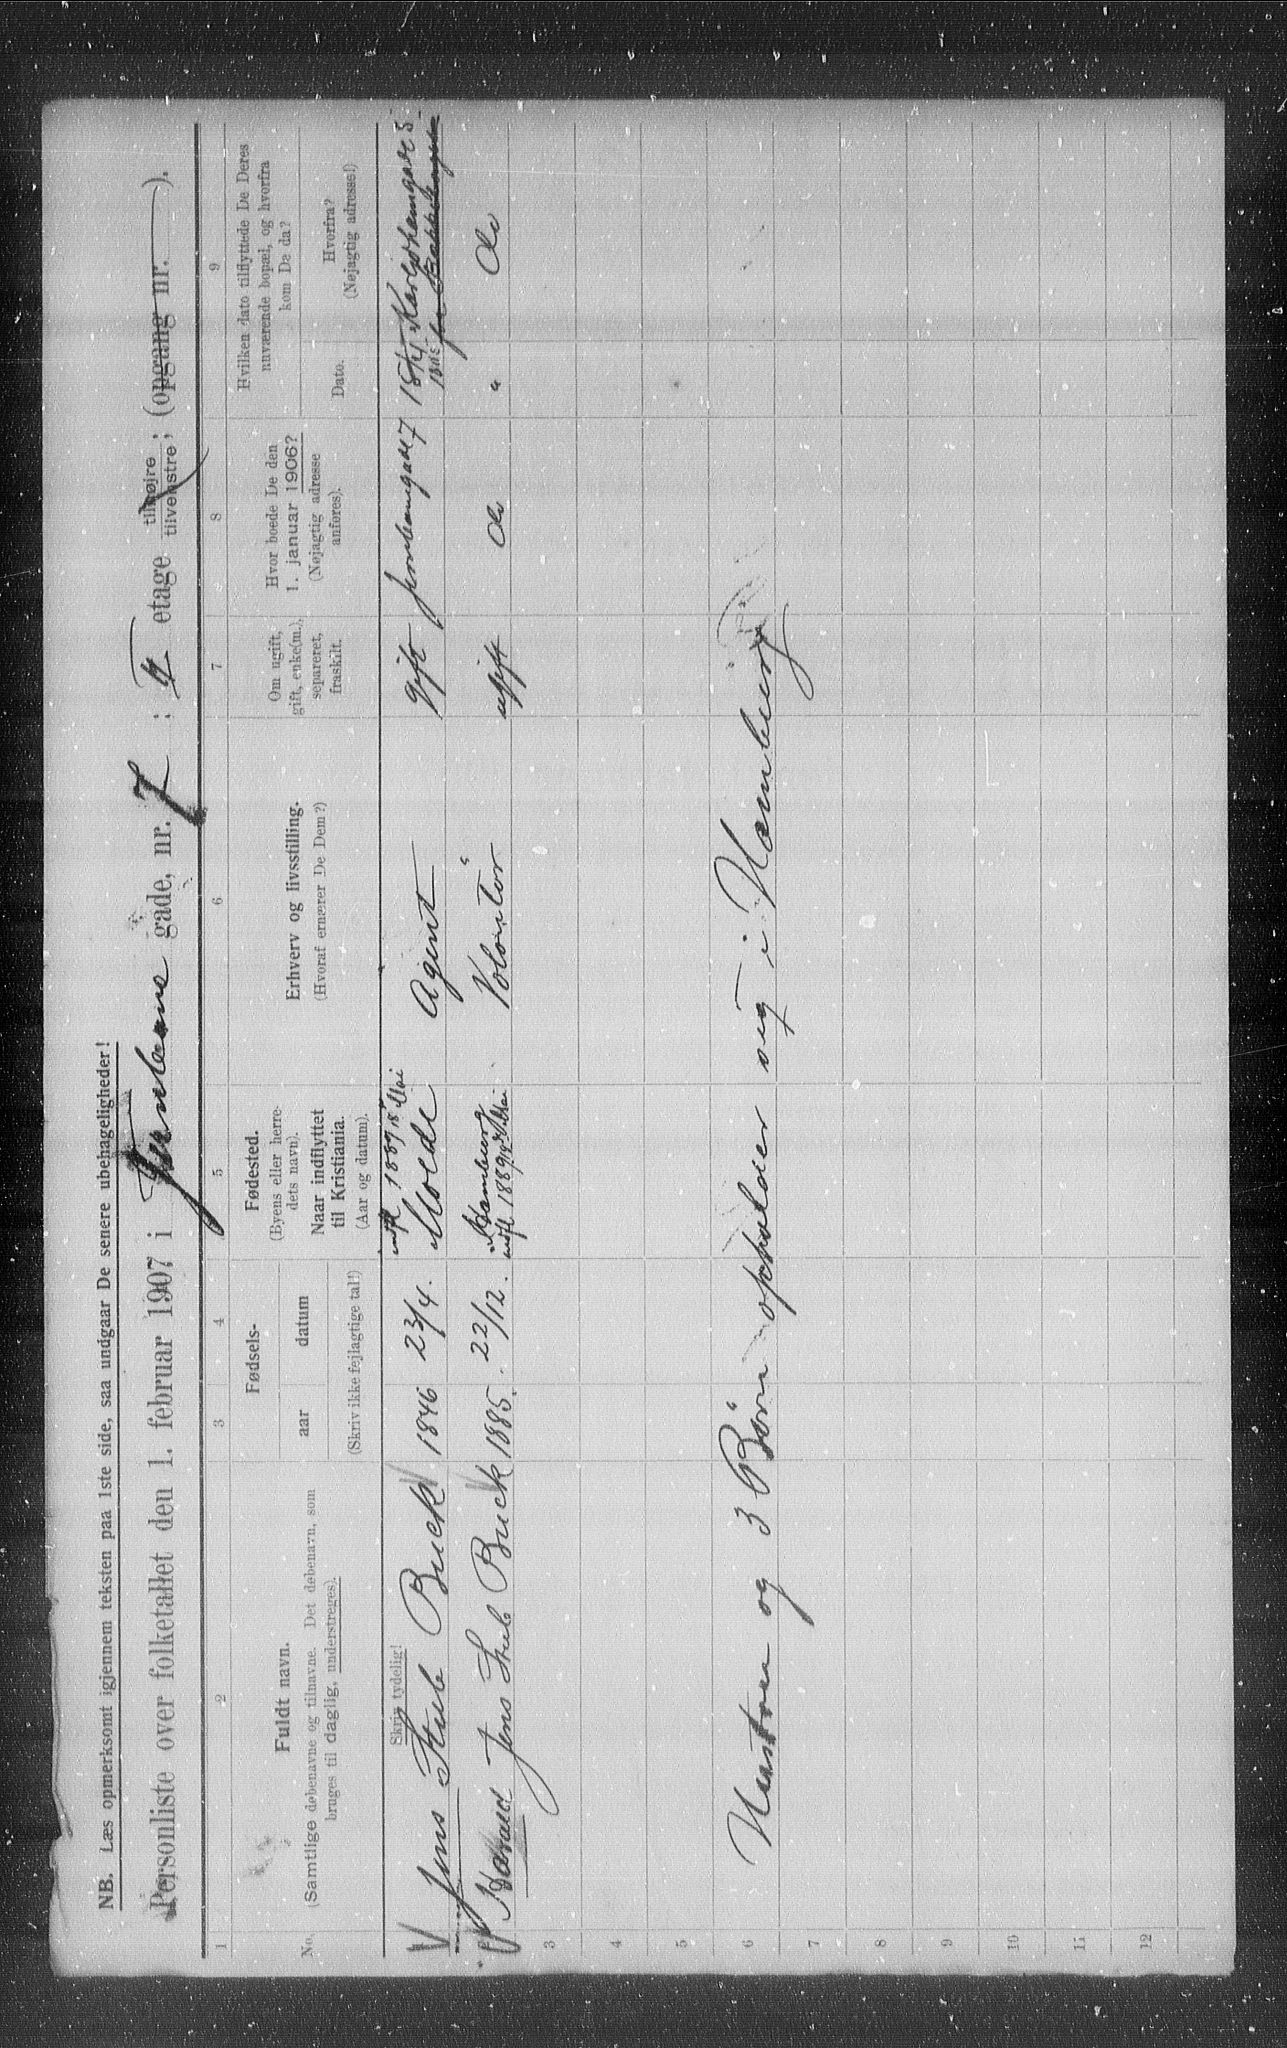 NB. Læs opmerksomt igjennem teksten paa 1ste side, saa undgaar De senere ubehageligheder!
Personliste over folketallet den 1. februar 1907 i Jernbane gade, nr. 7 ; etage tilhøjre tilvenstre; (opgang nr. ).
1 2 3 4 5 6 7 8 9
No.
Fuldt navn.
(Samtlige døbenavne og tilnavne. Det døbenavn, som
bruges til daglig, understreges).
Fødsels-
aar
datum
(Skriv ikke fejlagtige tal!)
Fødested.
(Byens eller herre-
dets navn).
Naar indflyttet
til Kristiania.
(Aar og datum).
Erhverv og livsstilling.
(Hvoraf ernærer De Dem?)
Om ugift,
gift, enke(m.),
separeret,
fraskilt.
Hvor boede De den
1. januar 1906?
(Nøjagtig adresse
anføres).
Hvilken dato tilflyttede De Deres
nuværende bopæl, og hvorfra
kom De da?
Dato.
Hvorfra?
(Nøjagtig adresse!)
Skriv tydelig!
indfl. 1889 18 Mai
Jens Stub Buck 1846 23/4. Molde Agent gift Jernbanegade 7
2 Harald Jens Stub Buck 1885. 22/12. Hamburg Volontør ugift do " do
indfl. 1889 18 Mai
3
4
5
6 Hustru og 3 Børn opholder sig i Hamburg
7
8
9
10
11
12